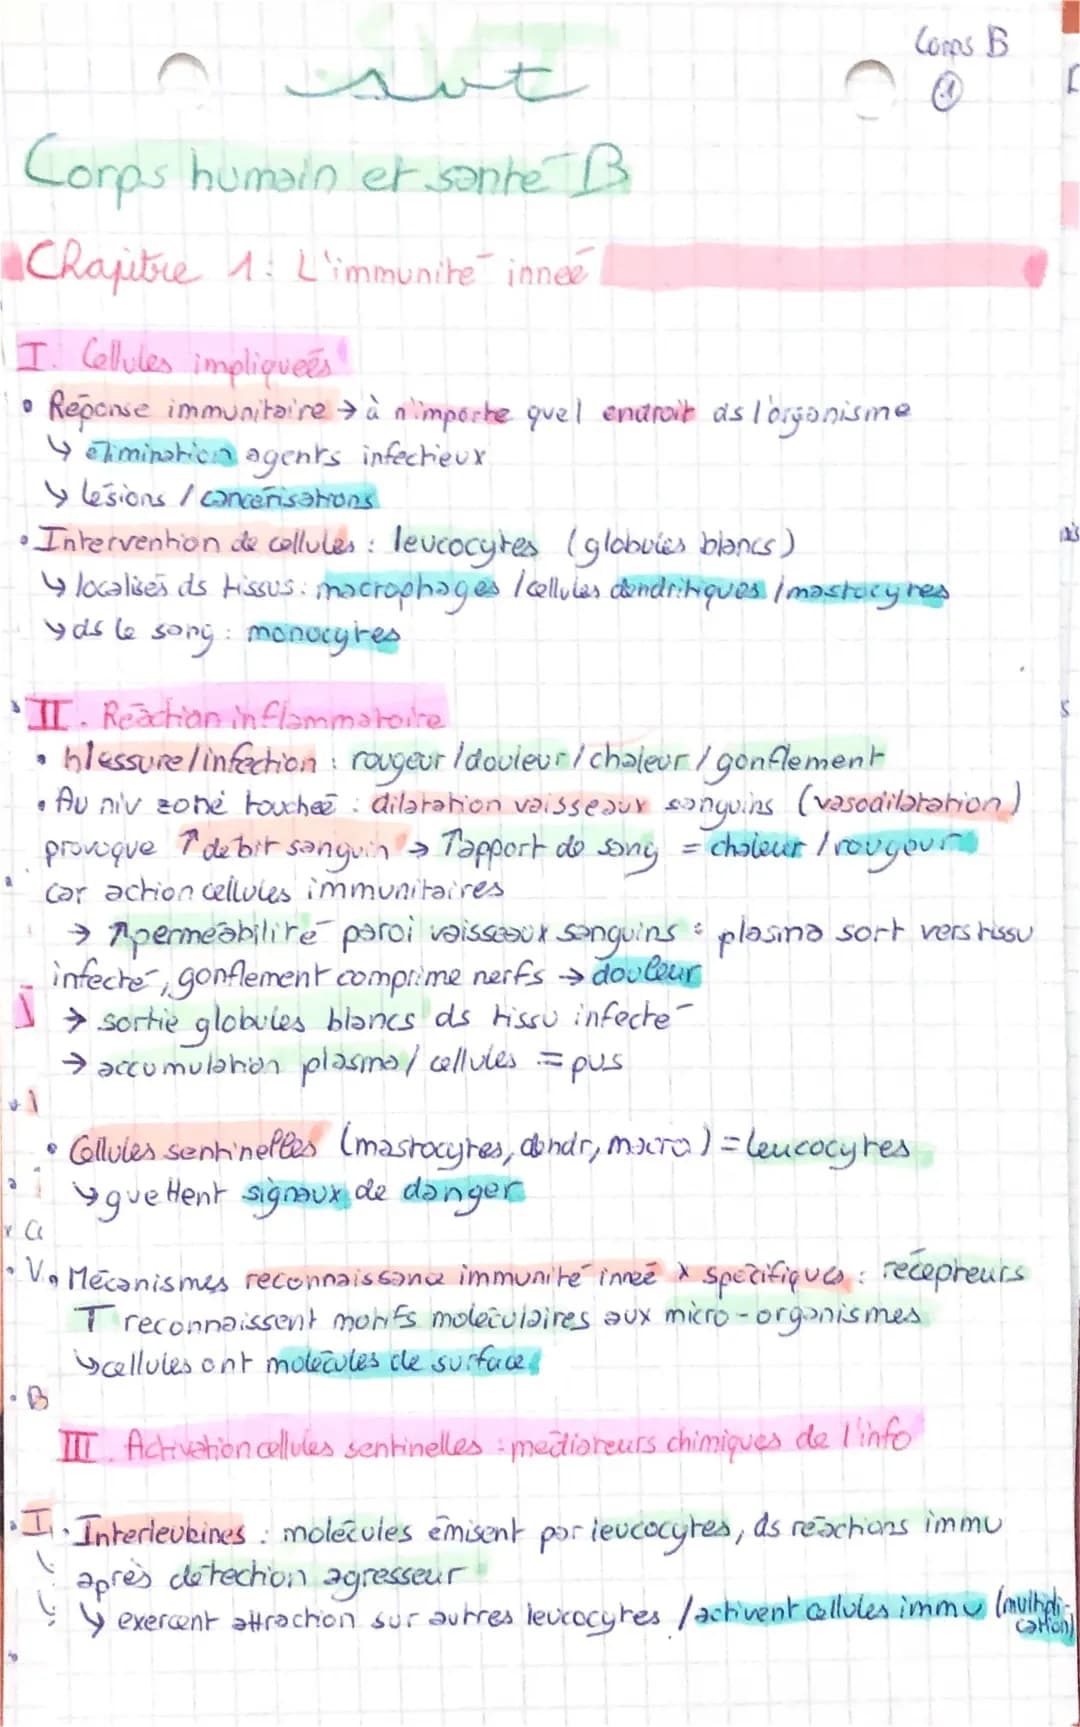 Corps B
1
svt
Corps humain et santé B
Chapitre 1: L'immunité innée
I. Cellules impliquées
• Réponse immunitaire → à n'importe quel endroit ds l'organisme
↳ élimination agents infectieux
↳ lésions / cancérisations
• Intervention de cellules : leucocytes (globules blancs)
↳ localisés ds tissus : macrophages / cellules dendritiques / mastocytes
↳ ds le sang : monocytes
II. Réaction inflammatoire
• blessure/infection : rougeur / douleur / chaleur / gonflement
• Au niv zone touchée : dilatation vaisseaux sanguins (vasodilatation)
provoque ↑ débit sanguin → ↑ apport de sang = chaleur / rougeur
car action cellules immunitaires
→ ↑ perméabilité paroi vaisseaux sanguins : plasma sort vers tissu
infecté, gonflement comprime nerfs → douleur
→ sortie globules blancs ds tissu infecté
→ accumulation plasma / cellules = pus
• Cellules sentinelles (mastocytes, dendr, macro) = leucocytes
↳ guettent signaux de danger
• Mécanismes reconnaissance immunité innée x spécifiques : récepteurs
T reconnaissent motifs moléculaires aux micro-organismes
↳ cellules ont molécules de surface
III. Activation cellules sentinelles : médiateurs chimiques de l'info
• Interleukines : molécules émisent par leucocytes, ds réactions immu
après détection agresseur
↳ exercent attraction sur autres leucocytes / activent cellules immu (multipli-
cation)